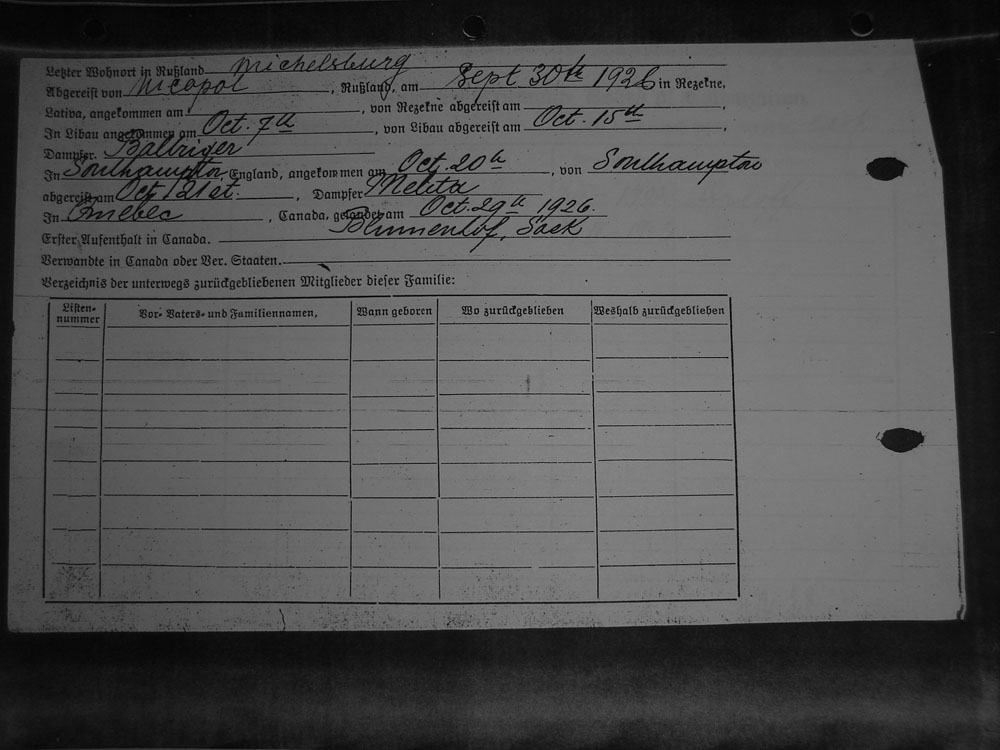 Letzter Wohnort in Rußland Michelsburg
Abgereist von Nicopol, Rußland, am Sept 30th 1926 in Rezekne,
Lativa, angekommen am , von Rezekne abgereist am ,
In Libau angekommen am Oct. 7th, von Libau abgereist am Oct. 15th,
Dampfer. Baltriger
In Southampton, England, angekommen am Oct. 20th, von Southampton
abgereist am Oct 21st., Dampfer Melita
In Quebec, Canada, gelandet am Oct. 29th 1926.
Erster Aufenthalt in Canada. Blumenhof, Sask
Verwandte in Canada oder Ver. Staaten.
Verzeichnis der unterwegs zurückgebliebenen Mitglieder dieser Familie:
Listen-nummer Vor- Vaters- und Familiennamen, Wann geboren Wo zurückgeblieben Weshalb zurückgeblieben